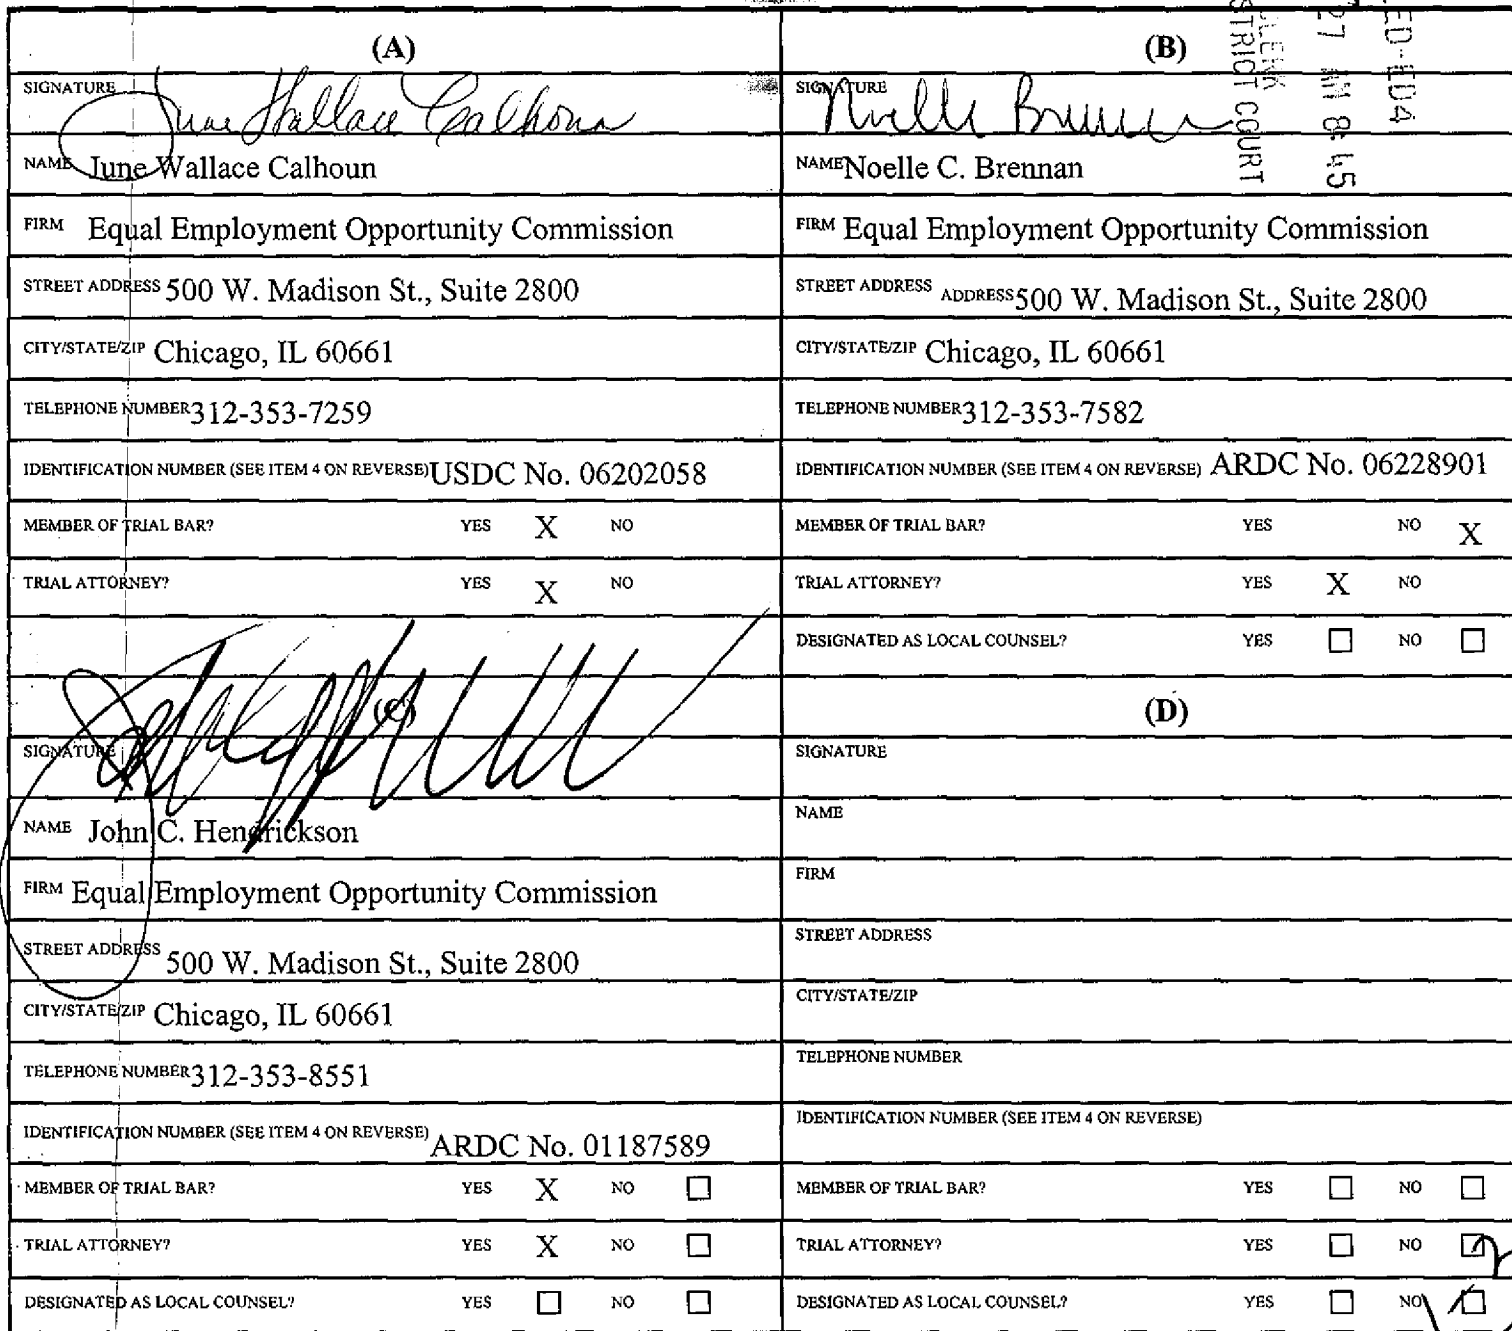 (A)
SIGNATURE June Wallace Calhoun
NAME June Wallace Calhoun
FIRM Equal Employment Opportunity Commission
STREET ADDRESS 500 W. Madison St., Suite 2800
CITY/STATE/ZIP Chicago, IL 60661
TELEPHONE NUMBER 312-353-7259
IDENTIFICATION NUMBER (SEE ITEM 4 ON REVERSE) USDC No. 06202058
MEMBER OF TRIAL BAR? YES X NO
TRIAL ATTORNEY? YES X NO
(B)
SIGNATURE Noelle Brennan
NAME Noelle C. Brennan
FIRM Equal Employment Opportunity Commission
STREET ADDRESS ADDRESS 500 W. Madison St., Suite 2800
CITY/STATE/ZIP Chicago, IL 60661
TELEPHONE NUMBER 312-353-7582
IDENTIFICATION NUMBER (SEE ITEM 4 ON REVERSE) ARDC No. 06228901
MEMBER OF TRIAL BAR? YES NO X
TRIAL ATTORNEY? YES X NO
DESIGNATED AS LOCAL COUNSEL? YES □ NO □
ED-ED4
27 AM 8:45
CLERK
STRICT COURT
(C)
SIGNATURE
NAME John C. Hendrickson
FIRM Equal Employment Opportunity Commission
STREET ADDRESS 500 W. Madison St., Suite 2800
CITY/STATE/ZIP Chicago, IL 60661
TELEPHONE NUMBER 312-353-8551
IDENTIFICATION NUMBER (SEE ITEM 4 ON REVERSE) ARDC No. 01187589
MEMBER OF TRIAL BAR? YES X NO □
TRIAL ATTORNEY? YES X NO □
DESIGNATED AS LOCAL COUNSEL? YES □ NO □
(D)
SIGNATURE
NAME
FIRM
STREET ADDRESS
CITY/STATE/ZIP
TELEPHONE NUMBER
IDENTIFICATION NUMBER (SEE ITEM 4 ON REVERSE)
MEMBER OF TRIAL BAR? YES □ NO □
TRIAL ATTORNEY? YES □ NO □
DESIGNATED AS LOCAL COUNSEL? YES □ NO □